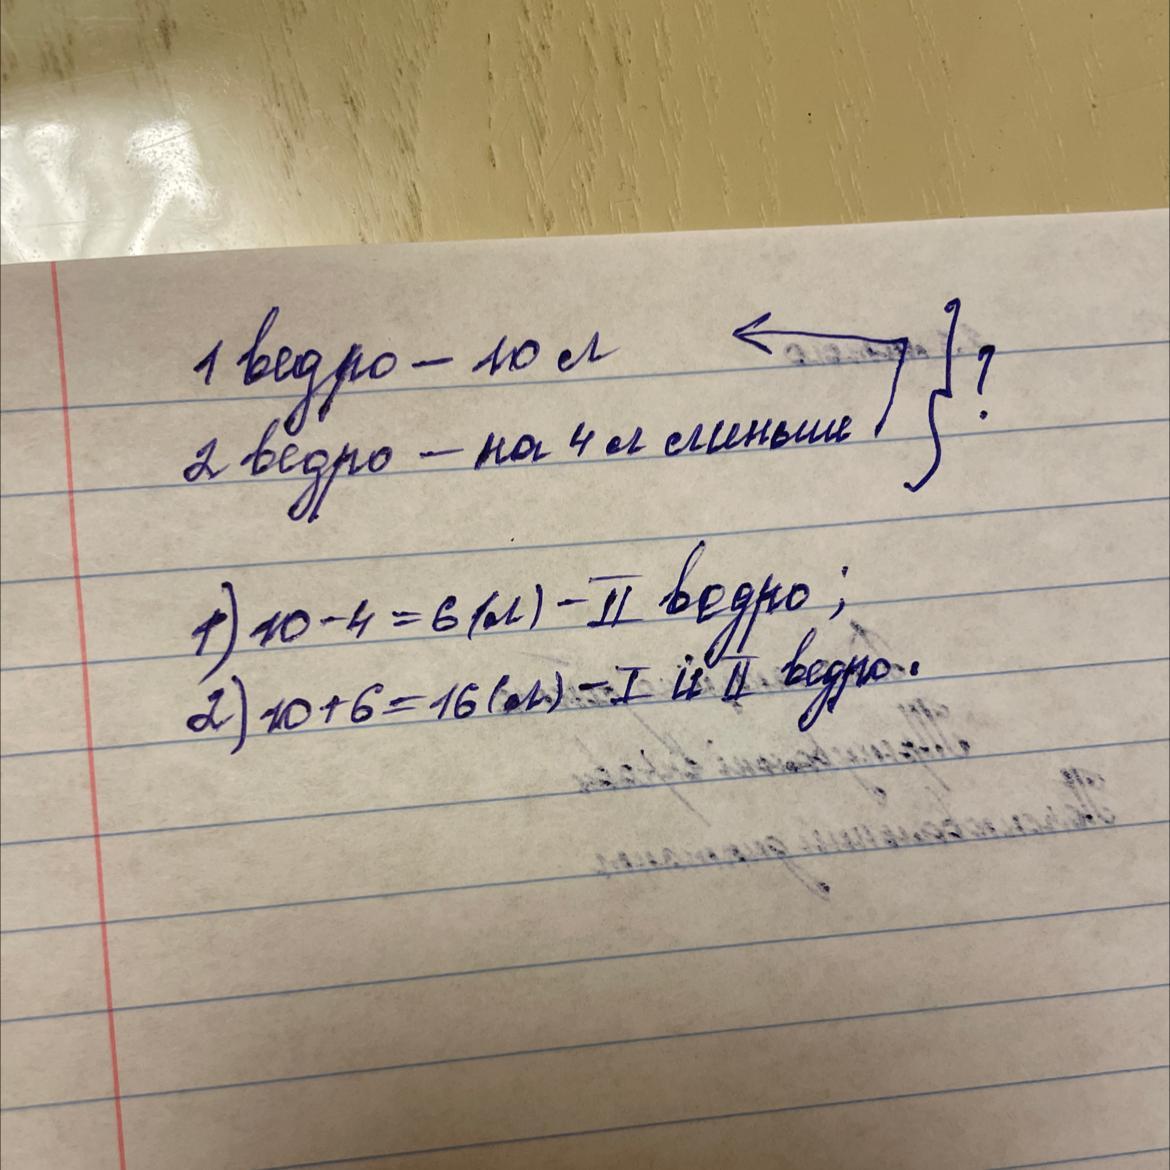 1 ведро – 10 л
2 ведро – на 4 л меньше } ?
1) 10 - 4 = 6 (л) – II ведро;
2) 10 + 6 = 16 (л) – I и II ведро.